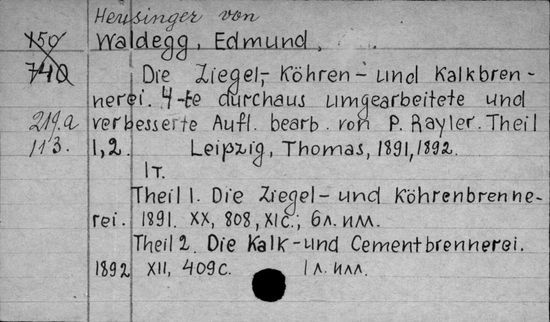 Heusinger von
150 Waldegg, Edmund,
740 Die Ziegel,- Köhren- und Kalkbren-
nerei. 4-te durchaus umgearbeitete und
219.a verbesserte Aufl. bearb. von P. Rayler. Theil
113. 1,2. Leipzig, Thomas, 1891, 1892.
1т.
Theil 1. Die Ziegel- und Köhrenbrenne-
rei. 1891. XX, 808, XI с.; 6 л. илл.
Theil 2. Die Kalk-und Cementbrennerei.
1892 XII, 409 с. 1 л. илл.